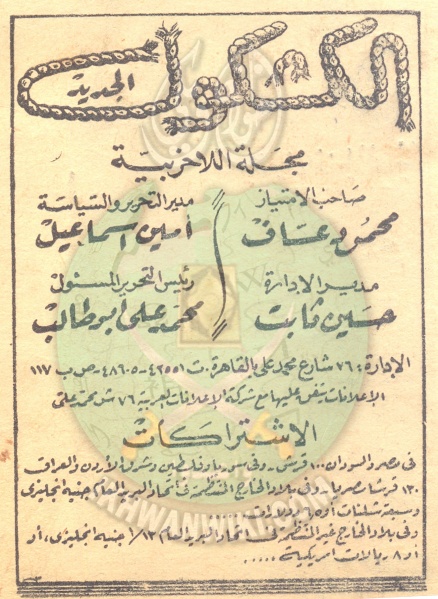 الكشكول
الجديد
مجلة اللاحزبية
صاحب الامتياز
محمود عساف
مدير التحرير والسياسة
أمين اسماعيل
مدير الإدارة
حسين ثابت
رئيس التحرير المسئول
محمد على أبو طالب
الإدارة: ٧٦ شارع محمد على بالقاهرة. ت ٤٢٥٥١ - ٤٨٦٠٥ - ص ب ١١٧
الإعلانات يتفق عليها مع شركة الإعلانات العربية ٧٦ ش محمد على
الاشتراكات
فى مصر والسودان ١٠٠ قرش - وفى سوريا وفلسطين وشرق الأردن والعراق
١٣٠ قرشا مصريا - وفى بلاد الخارج المنتظمة فى اتحاد البريد العام جنيه انجليزى
وسبعة شلنات أو
وفى بلاد الخارج غير المنتظمة فى اتحاد البريد العام جنيه انجليزى، أو
أو ٨ ريالات امريكية .....
IKHWANWIKI.COM